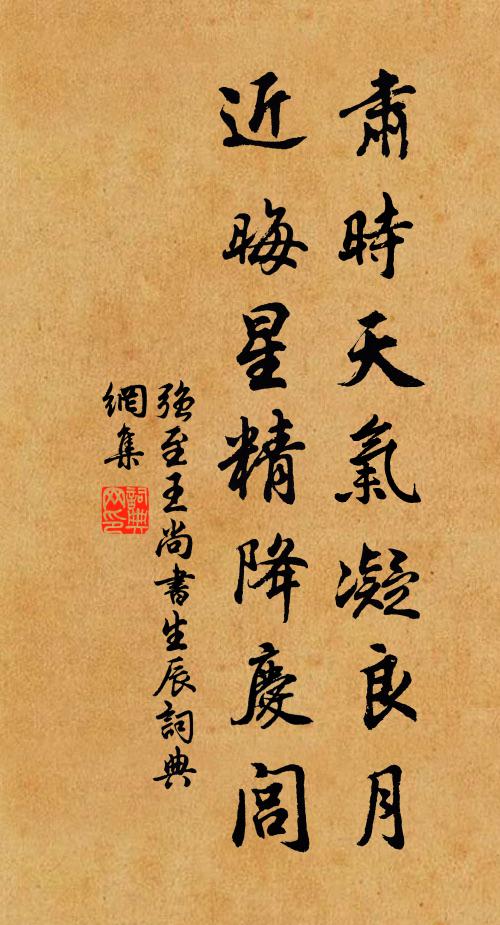 肅時天氣凝良月
近晦星精降慶閭
強至王尚書生辰詞典
網集
詞典
网印